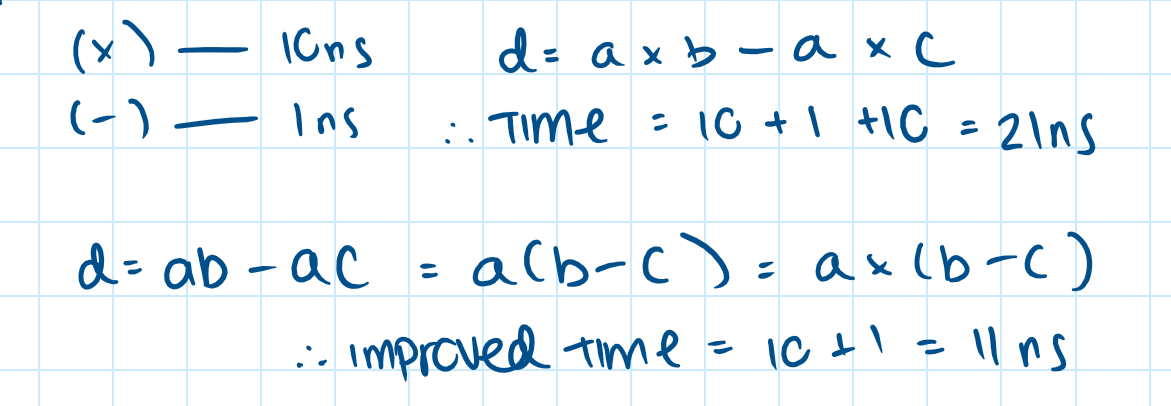 (x) — 10ns d = a x b - a x c
(-) — 1ns ∴ Time = 10 + 1 + 10 = 21ns
d = ab - ac = a(b-c) = a x (b-c)
∴ improved time = 10 + 1 = 11ns